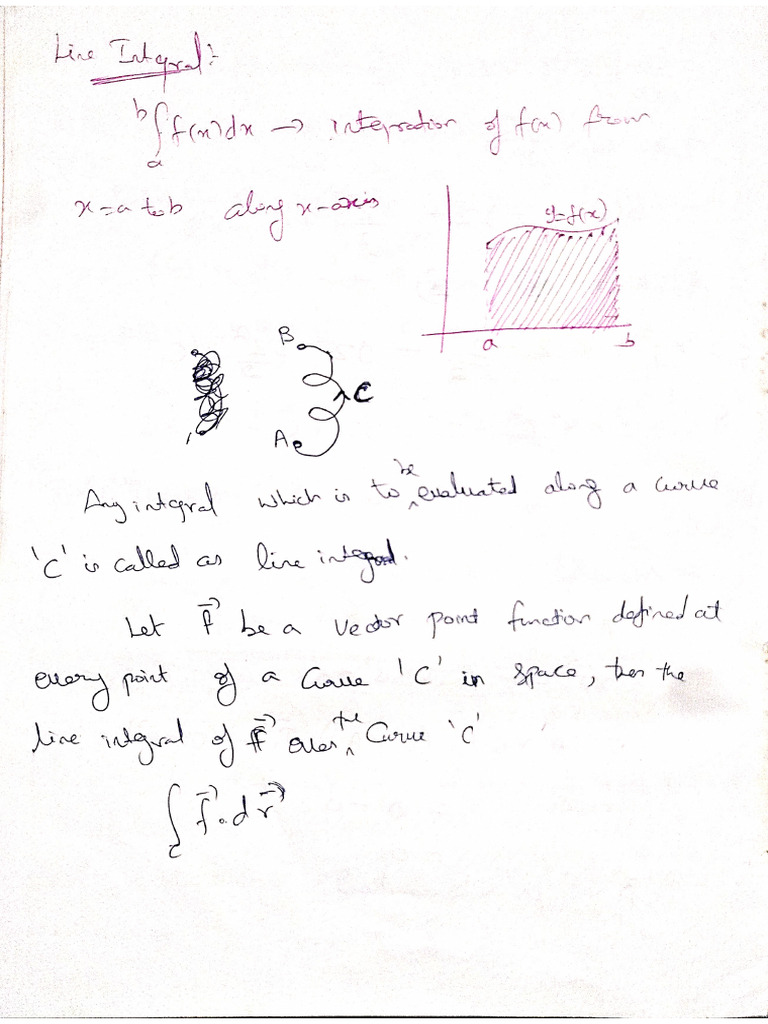 Line Integral:-
∫ₐᵇ f(x)dx → integration of f(x) from
x=a to b along x-axis
y=f(x)
a b
B
C
A
Any integral which is to be evaluated along a curve
'C' is called as line integral.
Let f⃗ be a vector point function defined at
every point of a curve 'C' in space, then the
line integral of f⃗ over the curve 'C'
∫_C f⃗ . dr⃗